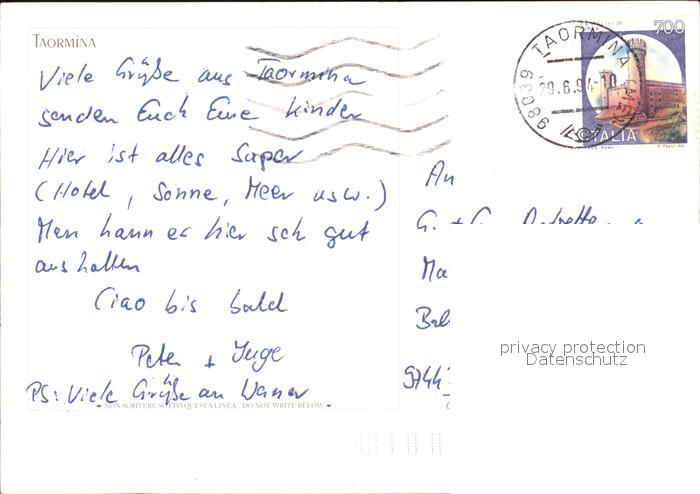 TAORMINA
Viele Grüße aus Taormina
senden Euch Eure Kinder
Hier ist alles Super
(Hotel, Sonne, Meer usw.)
Man kann es hier sehr gut
aushalten
Ciao bis bald
Peter + Inge
PS: Viele Grüße an Werner
• NON SCRIVERE SOTTO QUESTA LINEA - DO NOT WRITE BELOW •
700
ITALIA
98039 TAORMINA (ME)
29.6.94-10
An
G. + G.
Ma
9744
privacy protection
Datenschutz